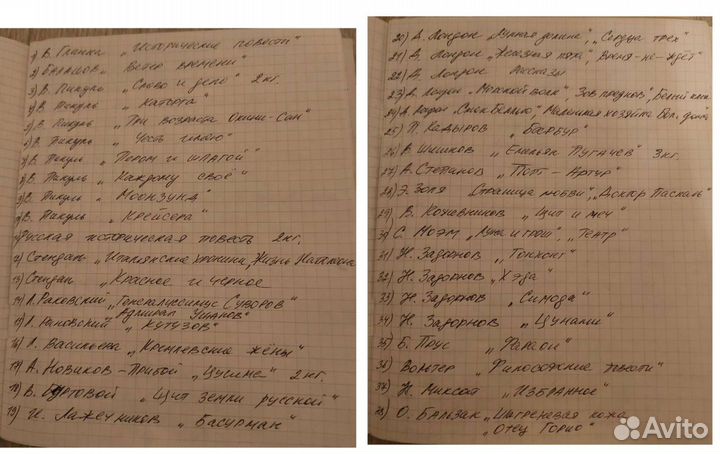 1) В. Глинка „Исторические повести"
2) Балашов „Ветер времени"
3) В. Пикуль „Слово и дело" 2 кг.
4) В. Пикуль „Каторга"
5) В. Пикуль „Три возраста Окини-Сан"
6) В. Пикуль „Честь имею"
7) В. Пикуль „Пером и шпагой"
8) В. Пикуль „Каждому своё"
9) В. Пикуль „Моонзунд"
10) В. Пикуль „Крейсера"
11) Русская историческая повесть 2 кг.
12) Стендаль „Итальянские хроники, Жизнь Наполеона
13) Стендаль „Красное и черное
14) Л. Раковский „Генералиссимус Суворов"
„Адмирал Ушаков"
15) Л. Раковский „Кутузов"
16) Л. Васильева „Кремлевские жёны"
17) А. Новиков-Прибой „Цусима" 2 кг.
18) В. Буртовой „Щит земли русской"
19) И. Лажечников „Басурман"
20) Д. Лондон „Лунная долина", „Сердца трех"
21) Д. Лондон „Железная пята", Время-не-ждёт"
22) Д. Лондон Рассказы
23) Д. Лондон „Морской волк", Зов предков", Белый клык
24) Д. Лондон „Смок Беллью", Маленькая хозяйка Бол. дома
25) П. Кадыров „Бабур"
26) В. Шишков „Емельян Пугачев" 3 кг.
27) А. Степанов „Порт-Артур"
28) Э. Золя Страница любви", „Доктор Паскаль"
29) В. Кожевников „Щит и меч"
30) С. Моэм „Луна и грош", „Театр"
31) Н. Задорнов „Гонконг"
32) Н. Задорнов „Хэда"
33) Н. Задорнов „Симода"
34) Н. Задорнов „Цунами"
35) Б. Прус „Фараон"
36) Вольтер „Философские повести"
37) К. Миксат „Избранное"
38) О. Бальзак „Шагреневая кожа
„Отец Горио"
Avito